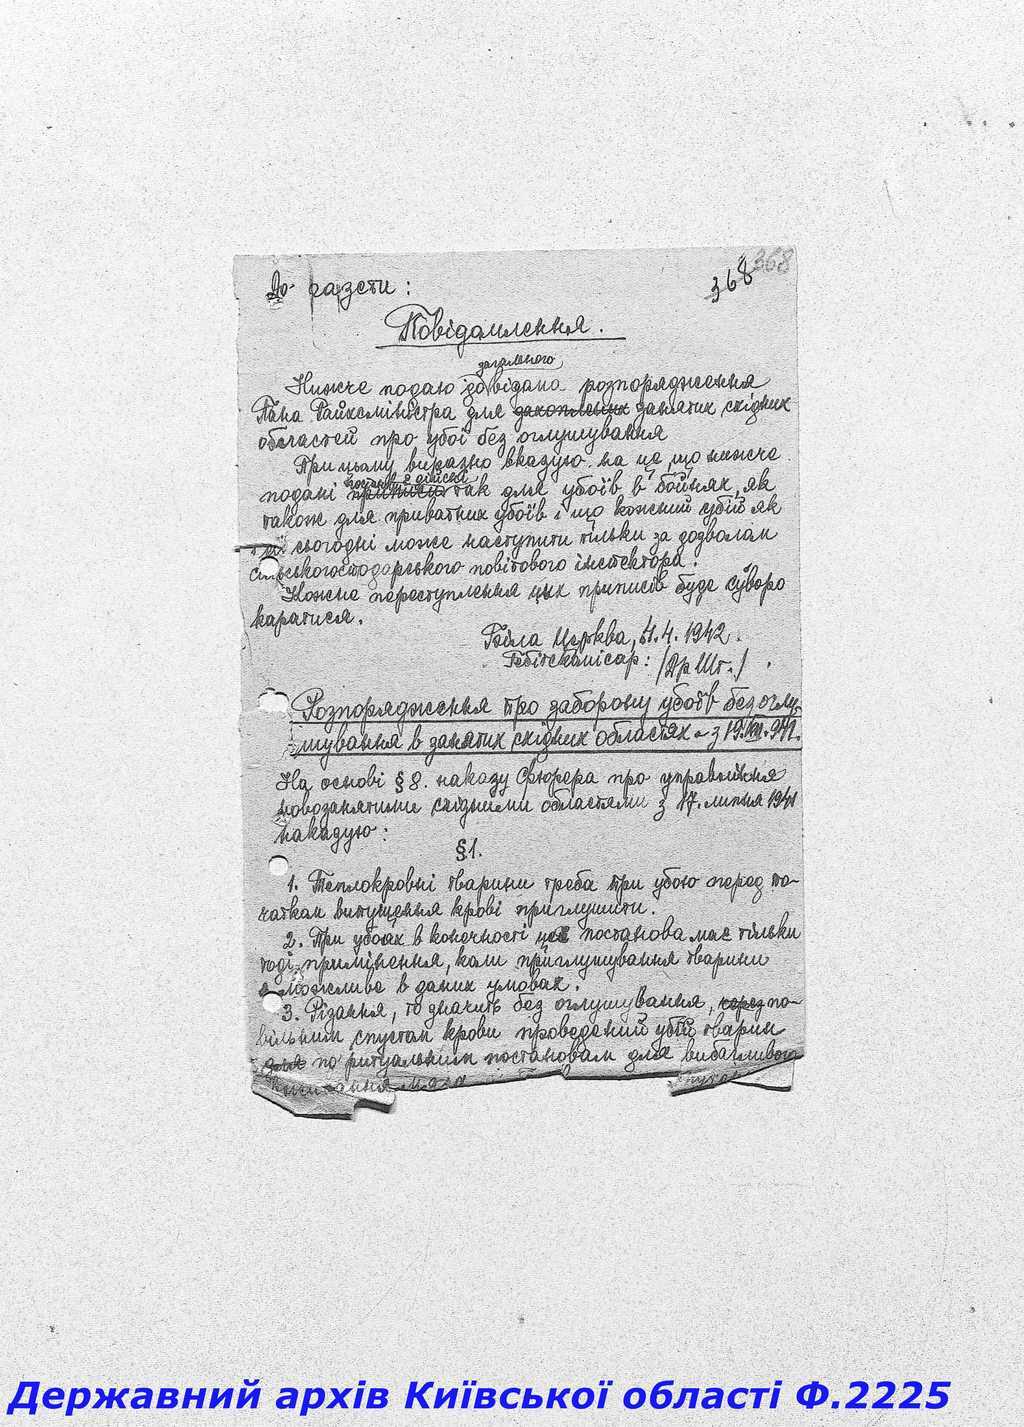 До газети:
368 368
Повідомлення.
загального
Нижче подаю до відана розпорядження
Пана Райхсміністра для захоплених занятих східних
областей про убої без оглушування
При цьому виразно вказую на це, що нижче
подані приписи так для убоїв в бойнях, як
також для приватних убоїв і що кожний убій як
сьогодні може наступити тільки за дозволом
сільськогосподарського повітового інспектора.
Кожне переступлення цих приписів буде суворо
каратися.
Біла Церква, 4. 1942.
Гебітскомісар: /Др Шт./
Розпорядження про заборону убоїв без оглу-
шування в занятих східних областях з 19.
На основі § 8. наказу Фюрера про управління
новозанятими східними областями з 17. липня 1941
наказую:
§1.
1. Теплокровні тварини треба при убою перед по-
чатком випущення крові приглушити.
2. При убоях в конечності ця постанова має тільки
тоді примінення, коли приглушування тварини
є можливе в даних умовах.
3. Різання, то значить без оглушування, через по-
вільним спустом крови проведений убій тварин
для по ритуальним постановам для вибагливого
Державний архів Київської області Ф.2225